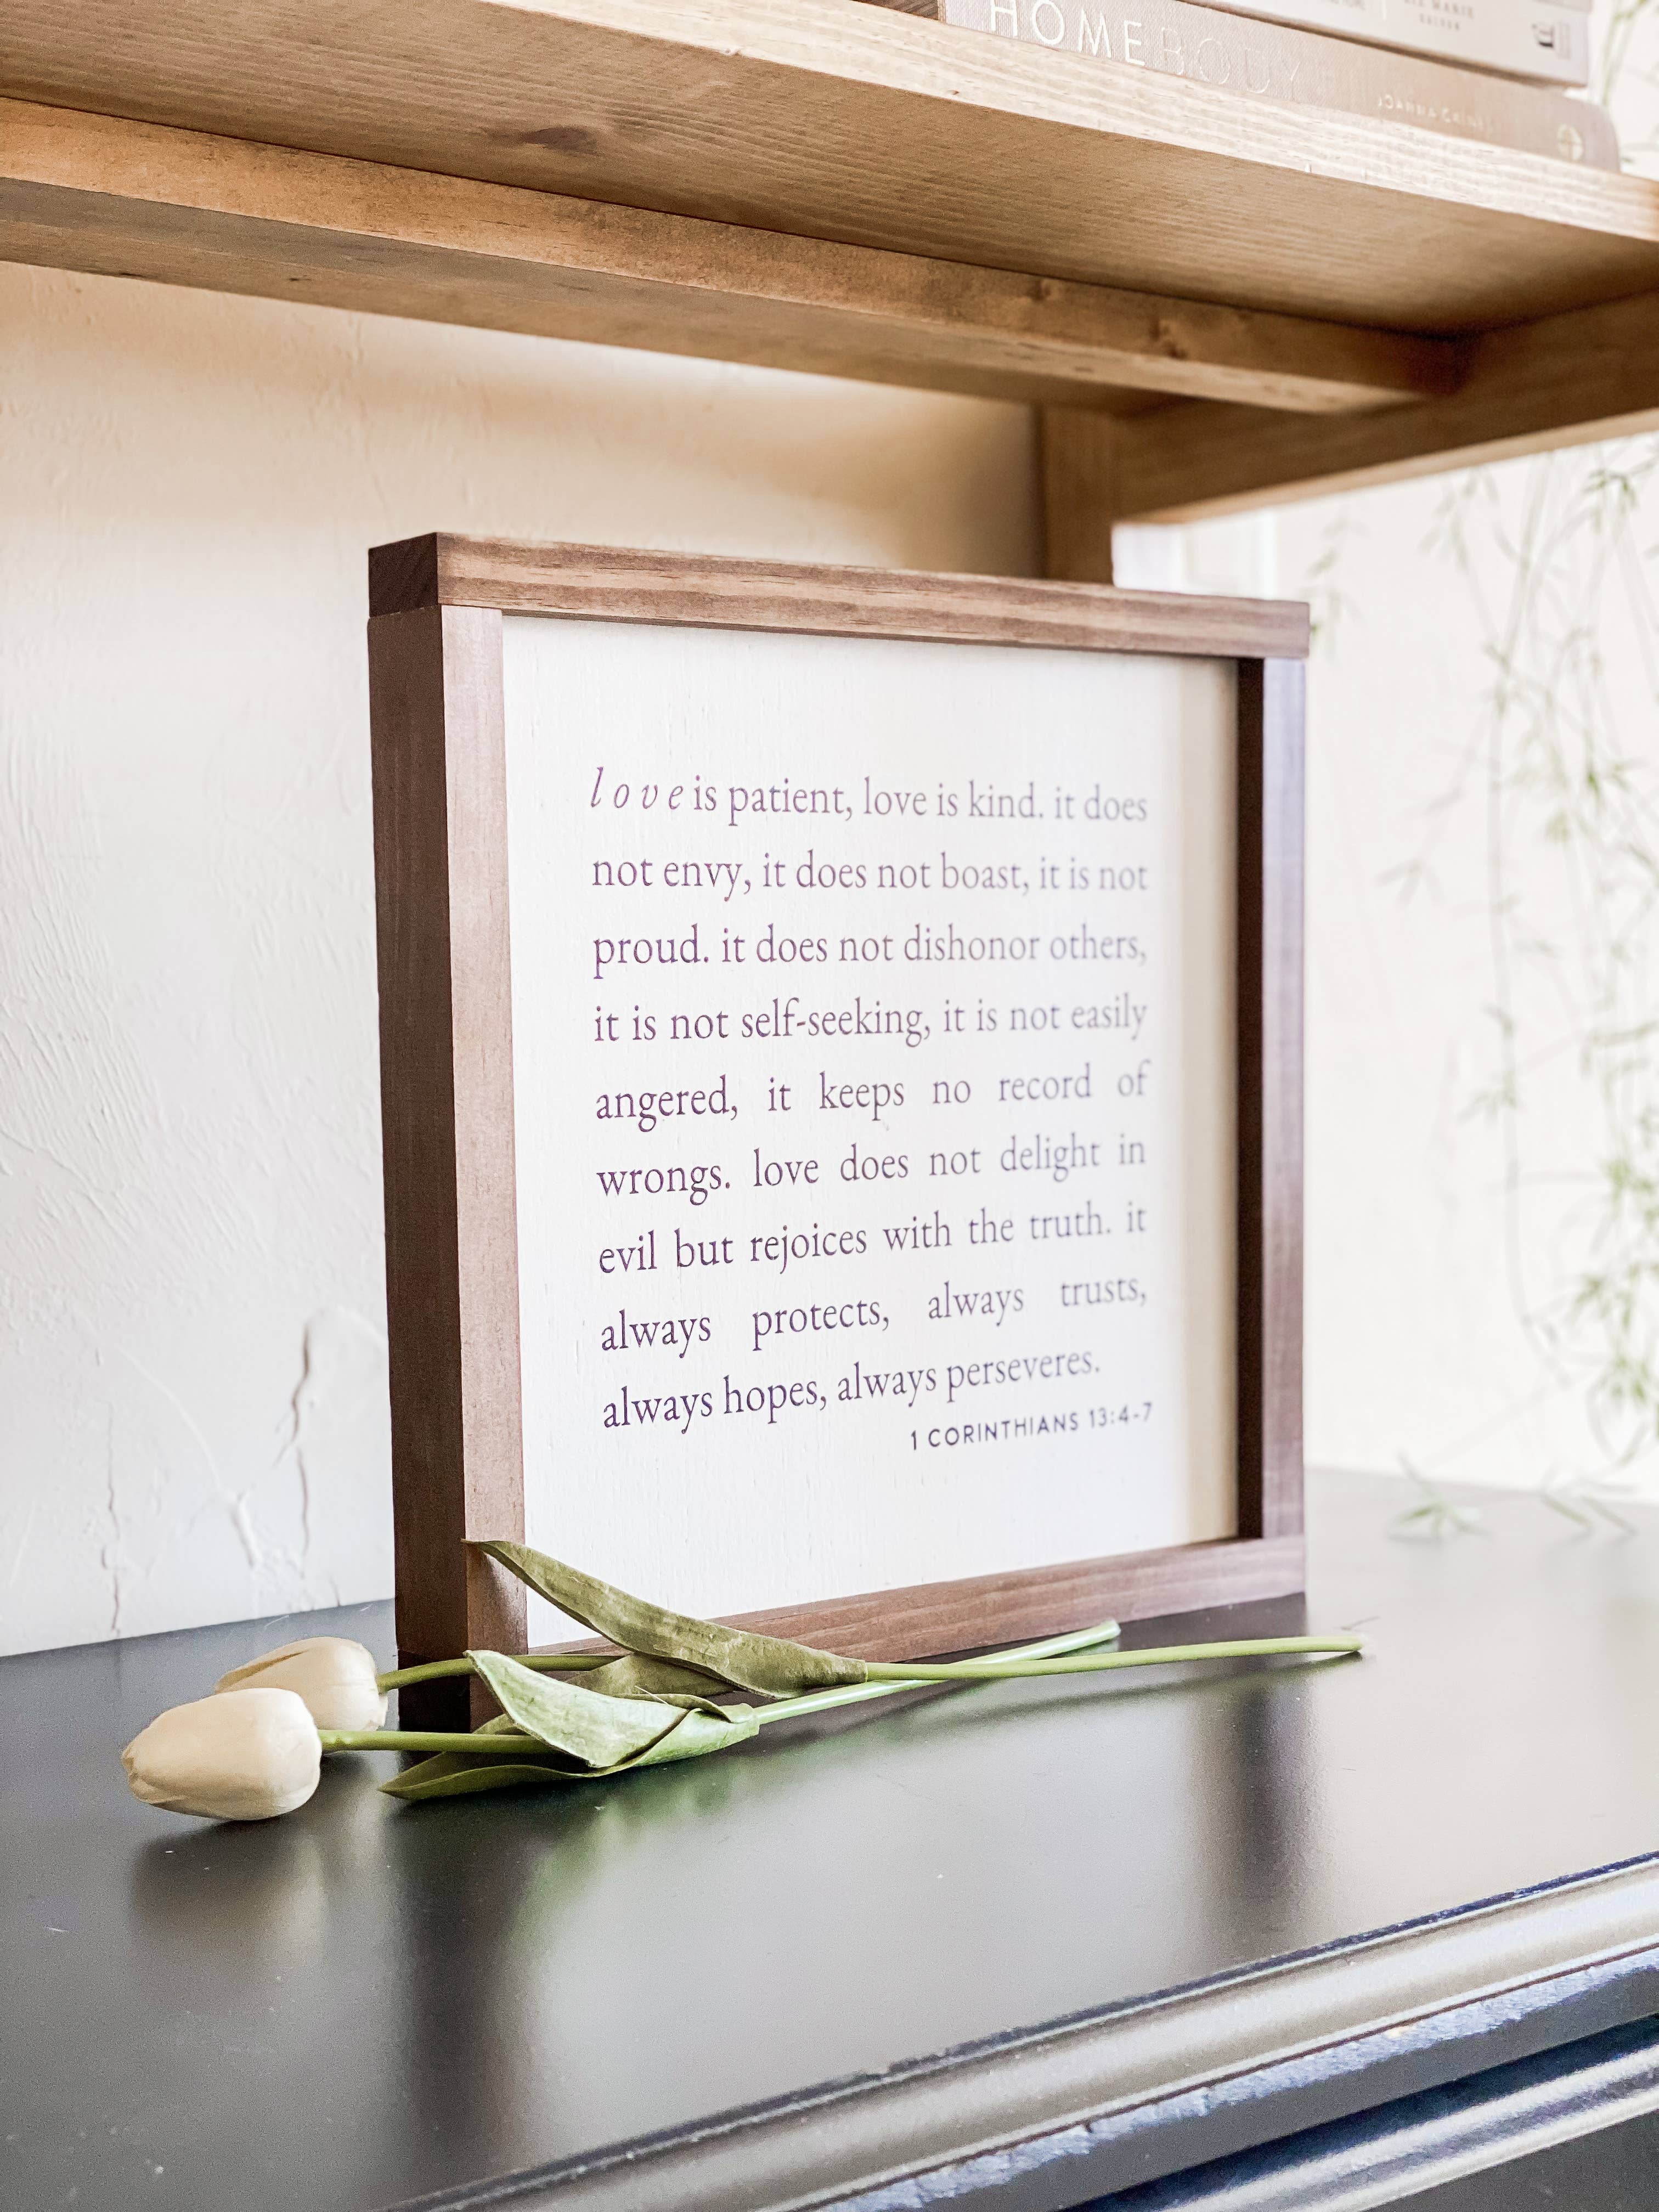 HOMEBODY
love is patient, love is kind. it does
not envy, it does not boast, it is not
proud. it does not dishonor others,
it is not self-seeking, it is not easily
angered, it keeps no record of
wrongs. love does not delight in
evil but rejoices with the truth. it
always protects, always trusts,
always hopes, always perseveres.
1 CORINTHIANS 13:4-7